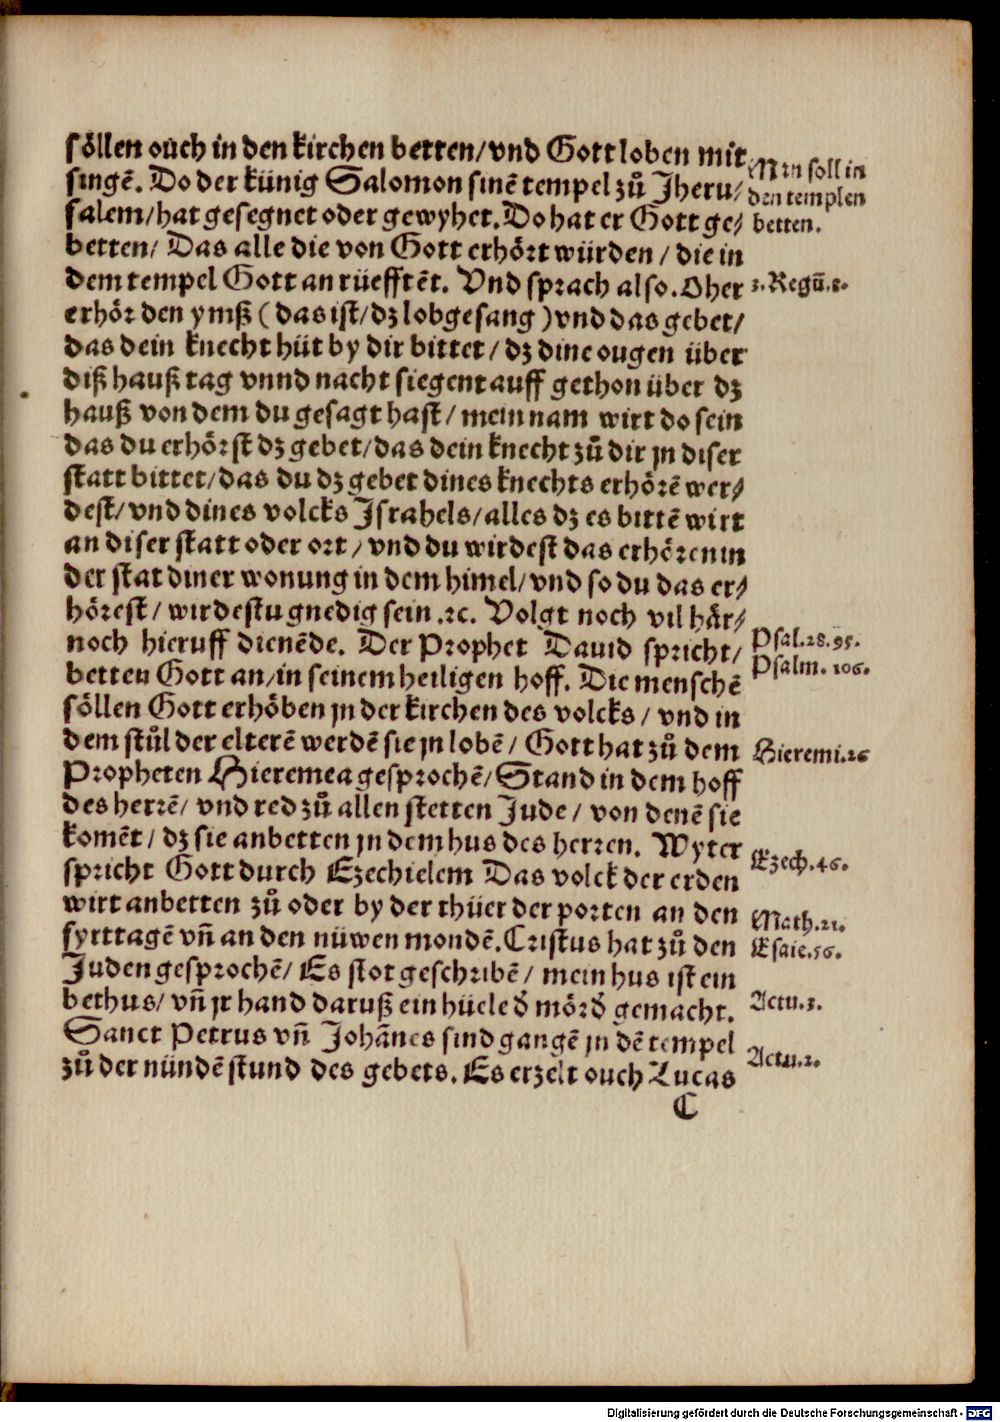 söllen oůch in den kirchen betten/ vnd Gott loben mit
singẽ. Do der künig Salomon sinẽ tempel zů Jheru/
salem/ hat gesegnet oder gewyhet. Do hat er Gott ge/
betten/ Das alle die von Gott erhört würden / die in
dem tempel Gott an rüefftẽt. Vnd sprach also. O her
erhör den ymß ( das ist/ dz lobgesang ) vnd das gebet/
das dein knecht hüt by dir bittet / dz dine ougen über
diß hauß tag vnnd nacht siegent auff gethon über dz
hauß von dem du gesagt hast / mein nam wirt do sein
das du erhörst dz gebet/ das dein knecht zů dir jn diser
statt bittet/ das du dz gebet dines knechts erhörẽ wer/
dest/ vnd dines volcks Jsrahels/ alles dz es bittẽ wirt
an diser statt oder ort / vnd du wirdest das erhören in
der stat diner wonung in dem himel/ vnd so du das er/
hörest / wirdestu gnedig sein .ꝛc. Volgt noch vil här/
noch hieruff dienẽde. Der Prophet Dauid spricht/
betten Gott an/ in seinem heiligen hoff. Die menschẽ
söllen Gott erhöben jn der kirchen des volcks / vnd in
dem stůl der elterẽ werdẽ sie jn lobẽ / Gott hat zů dem
Propheten Hieremea gesprochẽ/ Stand in dem hoff
des herrẽ/ vnd red zů allen stetten Jude / von denẽ sie
komẽt / dz sie anbetten jn dem hus des herren. Wyter
spricht Gott durch Ezechielem Das volck der erden
wirt anbetten zů oder by der thüer der porten an den
fyrttagẽ vñ an den nüwen mondẽ. Cristus hat zů den
Juden gesprochẽ/ Es stot geschribẽ / mein hus ist ein
bethus/ vñ jr hand daruß ein hüele d̕ mörd̕ gemacht.
Sanct Petrus vñ Johãnes sind gangẽ jn dẽ tempel
zů der nündẽ stund des gebets. Es erzelt ouch Lucas
C
Man soll in
den templen
betten.
3. Regũ. 8.
Psal. 28. 95.
Psalm. 106.
Hieremi. 26
Ezech. 46.
Math. 21.
Esaie. 56.
Actu. 3.
Actu. 2.
Digitalisierung gefördert durch die Deutsche Forschungsgemeinschaft - DFG